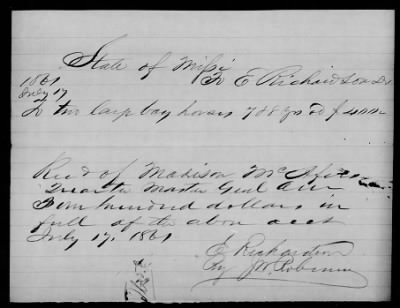 State of Missi
To E Richardson Dr
1861
July 17
To two large bay horses 7 & 8 yrs old $400.00
Recd of Madison McAfee
Quarter Master Genl
Four hundred dollars in
full of the above acct
July 17. 1861
E Richardson
By JW Robinson